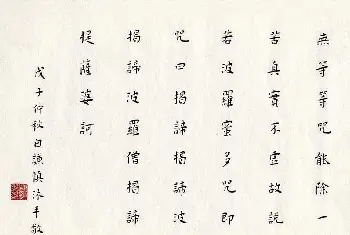 無等等咒能除一
苦真實不虛故說
若波羅蜜多咒即
咒曰揭諦揭諦波
揭諦波羅僧揭諦
提薩婆訶
戊子仲秋白謙慎沐手敬